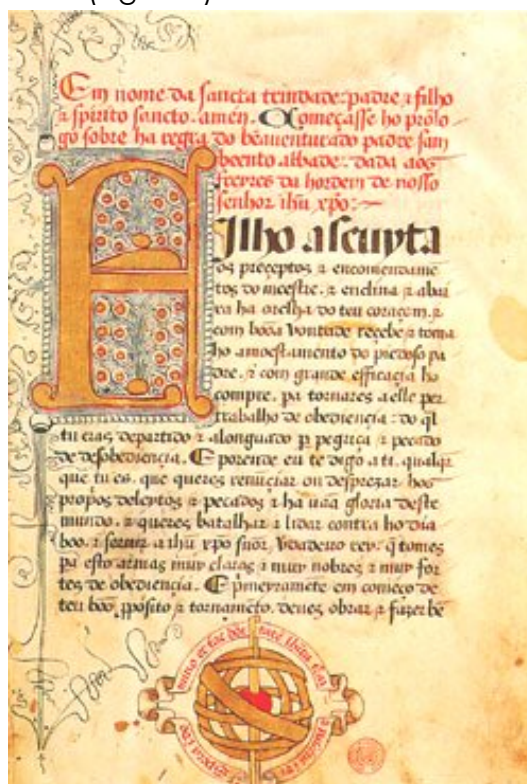 Em nome da sancta trindade: padre ⁊ filho
⁊ spirito sancto. amén. Começasse ho prólo
gó sobre ha regra do bẽaventurado padre sam
beento abbade. dada aos
freyres da hordem de nosso
senhor ihũ xpõ:~
Filho ascuyta
os preçeptos ⁊ encomendamẽ
tos do meestre. ⁊ enclina ⁊ abai
xa ha orelha do teu coraçom. ⁊
com bõoa vontade reçebe ⁊ toma
ho amoestamento do piedoso pa
dre. ⁊ com grande efficaçia ho
compre. pa tornares a elle per
trabalho de obediençia: do ql̃
tu eras departido ⁊ alonguado p̱ pegriça ⁊ pecado
de desobediençia. E porende eu te digo a ti. qualqr̃
que tu es. que queres renuçiar ou desprezar. hos
propios deleytos ⁊ pecados ⁊ ha vãa gloria deste
mundo. ⁊ queres batalhar ⁊ lidar contra ho dia
boo. ⁊ servir a ihũ xpo suõr. v̓dadeiro rey: q̃ tomes
pa esto armas muy claras ⁊ muy nobres ⁊ muy for
tes de obediençia. E p̓meyramẽte em começo de
teu bõo p̱posito ⁊ tornamẽto. deves obrar ⁊ fazer bẽ